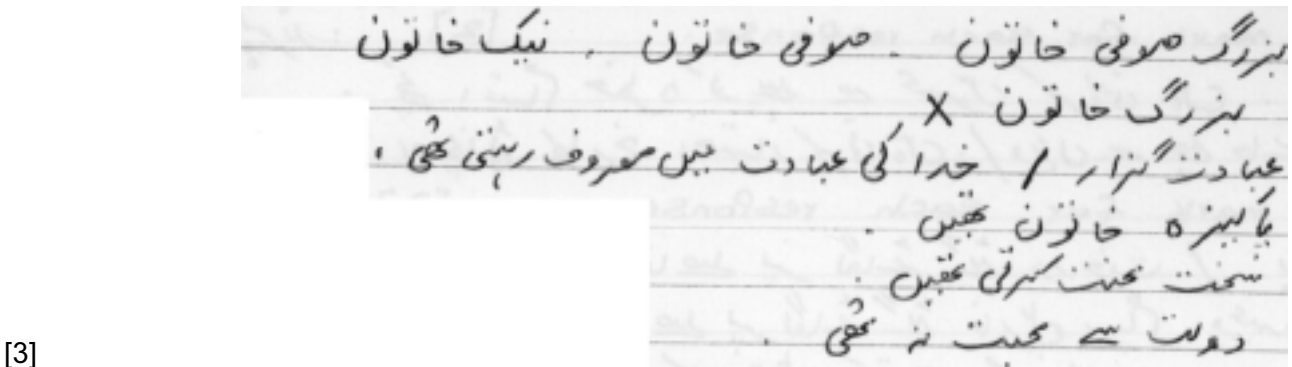 بزرگ صوفی خاتون . صوفی خاتون . نیک خاتون
بزرگ خاتون X
عبادت گزار / خدا کی عبادت میں مصروف رہتی تھی .
پاکیزہ خاتون تھیں .
سخت محنت کرتی تھیں .
دولت سے محبت نہ تھی .
[3]